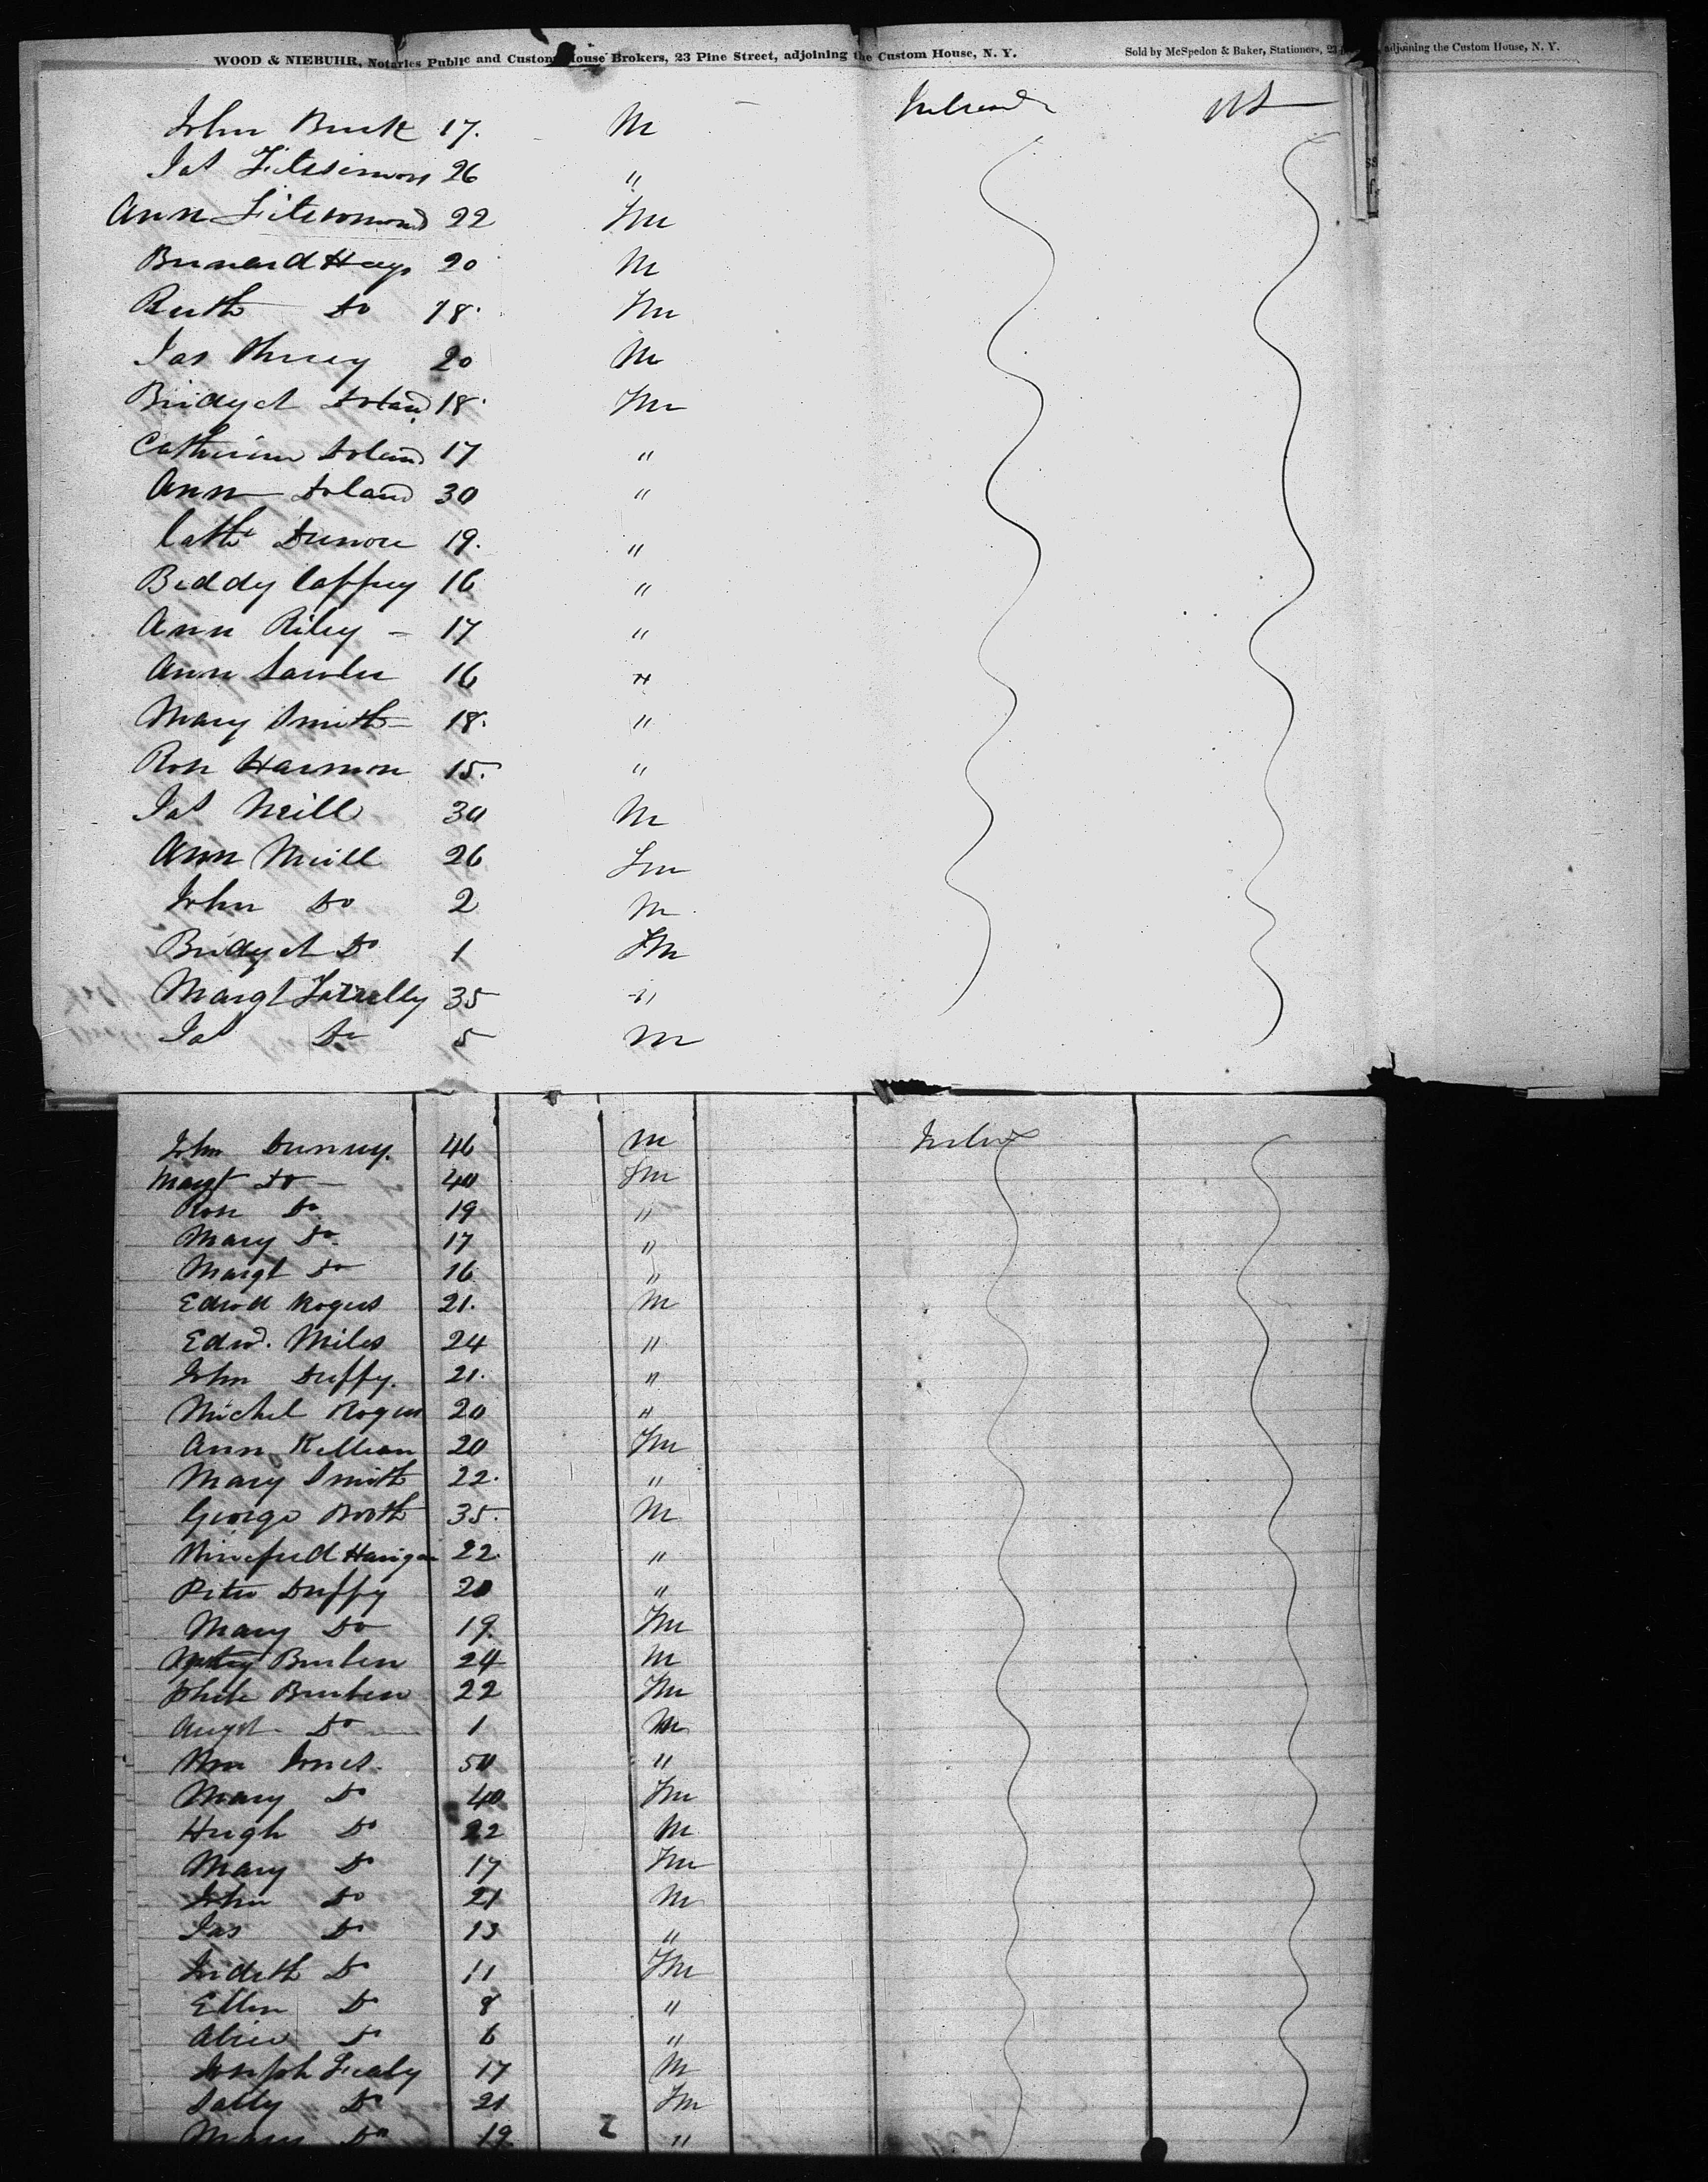 WOOD & NIEBUHR, Notaries Public and Custom House Brokers, 23 Pine Street, adjoining the Custom House, N. Y. Sold by McSpedon & Baker, Stationers, 23 adjoining the Custom House, N. Y.
John 17. M Ireland
Pat Fitssimon 26 "
Ann 22 Fm
Bernard Hays 20 M
Ruth Do 18. Fm
Jas 20 M
Bridget Doland 18. Fm
Catherine Doland 17 "
Ann Doland 30 "
Cath 19. "
Biddy Caffrey 16 "
Ann Riley - 17 "
Ann Lawler 16 "
Mary Smith 18. "
Rose Harmon 15. "
Pat Neill 30 M
Ann Neill 26 Fm
John Do 2 M
Bridget Do 1 Fm
Margt Farrelly 35 "
Pat Do 5 M
John 46 M Ireld
Margt Do 40 Fm
Rose Do 19 "
Mary Do 17 "
Margt Do 16 "
Edwd Rogers 21. M
Edwd. Miles 24 "
John Duffy. 21. "
Michel Rogers 20 "
Ann Killian 20 Fm
Mary Smith 22. "
George Booth 35. M
Winefred 22. "
Peter Duffy 20 "
Mary Do 19. Fm
24 M
22 Fm
Augst Do 1 M
Wm Jones. 50 "
Mary Do 40 Fm
Hugh Do 22 M
Mary Do 17 Fm
John Do 21 M
Jas Do 13 "
Judith Do 11 Fm
Ellen Do 8 "
Alice Do 6 "
Joseph Fealy 17 M
Sally Do 21 Fm
Mary Do 19 "